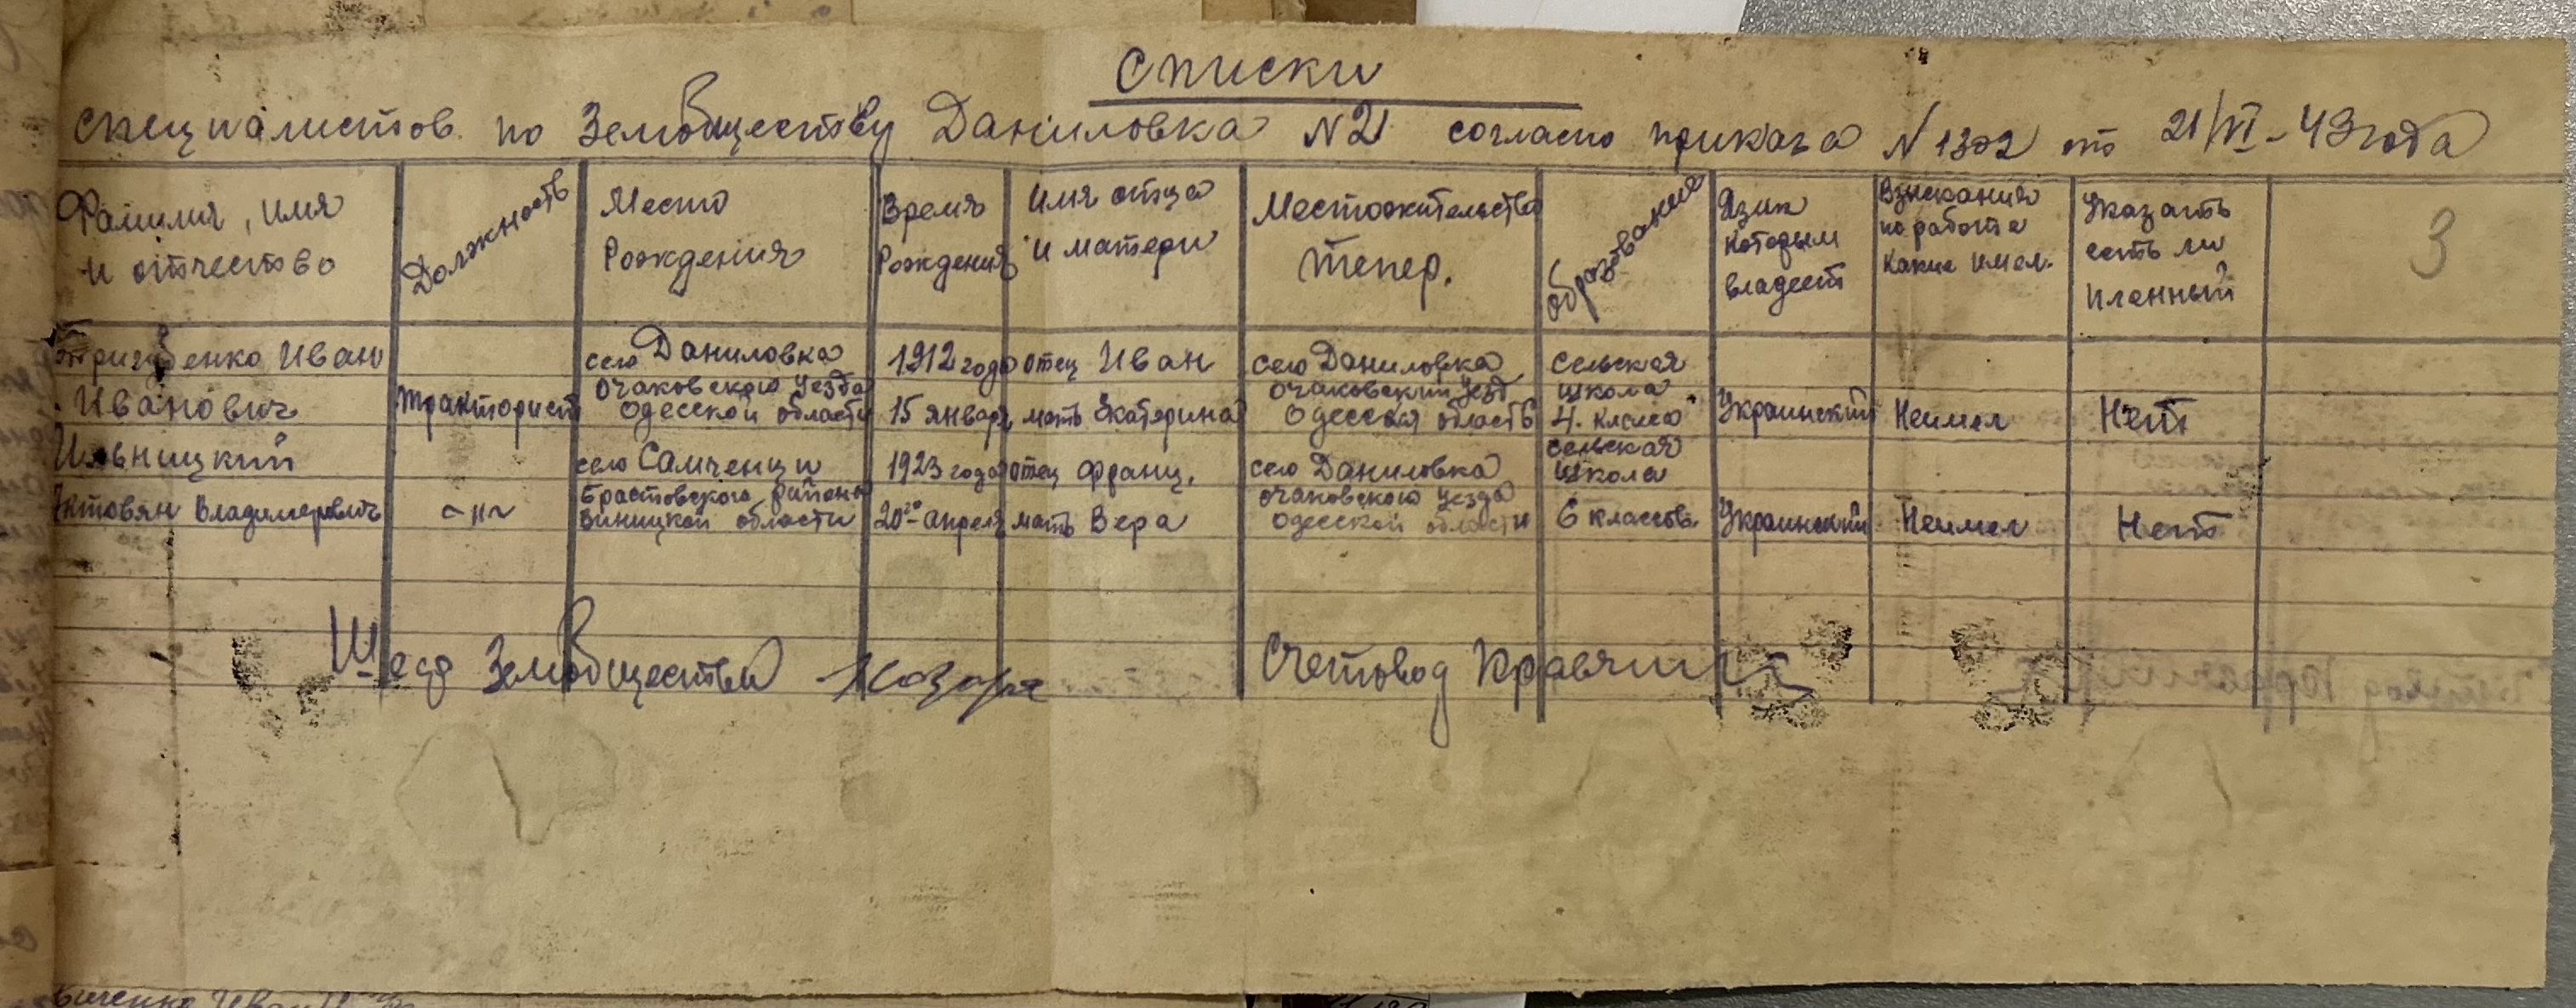 Списки
специалистов по Земобществу Даниловка N21 согласно приказа N1302 от 21/VI-43 года
Фамилия, имя и отчество
Должность
Место Рождения
Время Рождения
Имя отца и матери
Местожительства тепер.
образование
Язик которым владеет
Взискания по работе какие имел.
Указать есть ли пленный
3
Тригубенко Иван
село Даниловка
1912 года
отец Иван
село Даниловка
сельская
Иванович
тракторист
очаковского уезда
Одесской области
15 января
мать Екатерина
очаковский уезд
Одесская область
школа
4. класса
Украинский
Неимел
Нет
Ильницкий
село Самченци
1923 года
отец Франц.
село Даниловка
сельская
школа
Владимерович
-"-
района
Виницкой области
20го апреля
мать Вера
очаковского уезда
Одесской области
6 классов
Украинский
Неимел
Нет
Шеф Земобщества
Счетовод